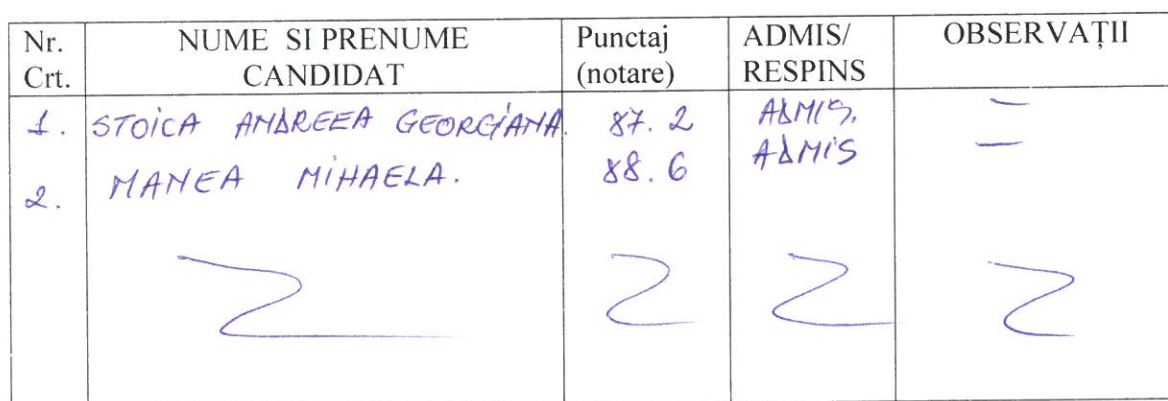 Nr. Crt. NUME SI PRENUME CANDIDAT Punctaj (notare) ADMIS/ RESPINS OBSERVAȚII
1. STOICA ANDREEA GEORGIANA. 87.2 ADMIS. —
2. MANEA MIHAELA. 88.6 ADMIS —